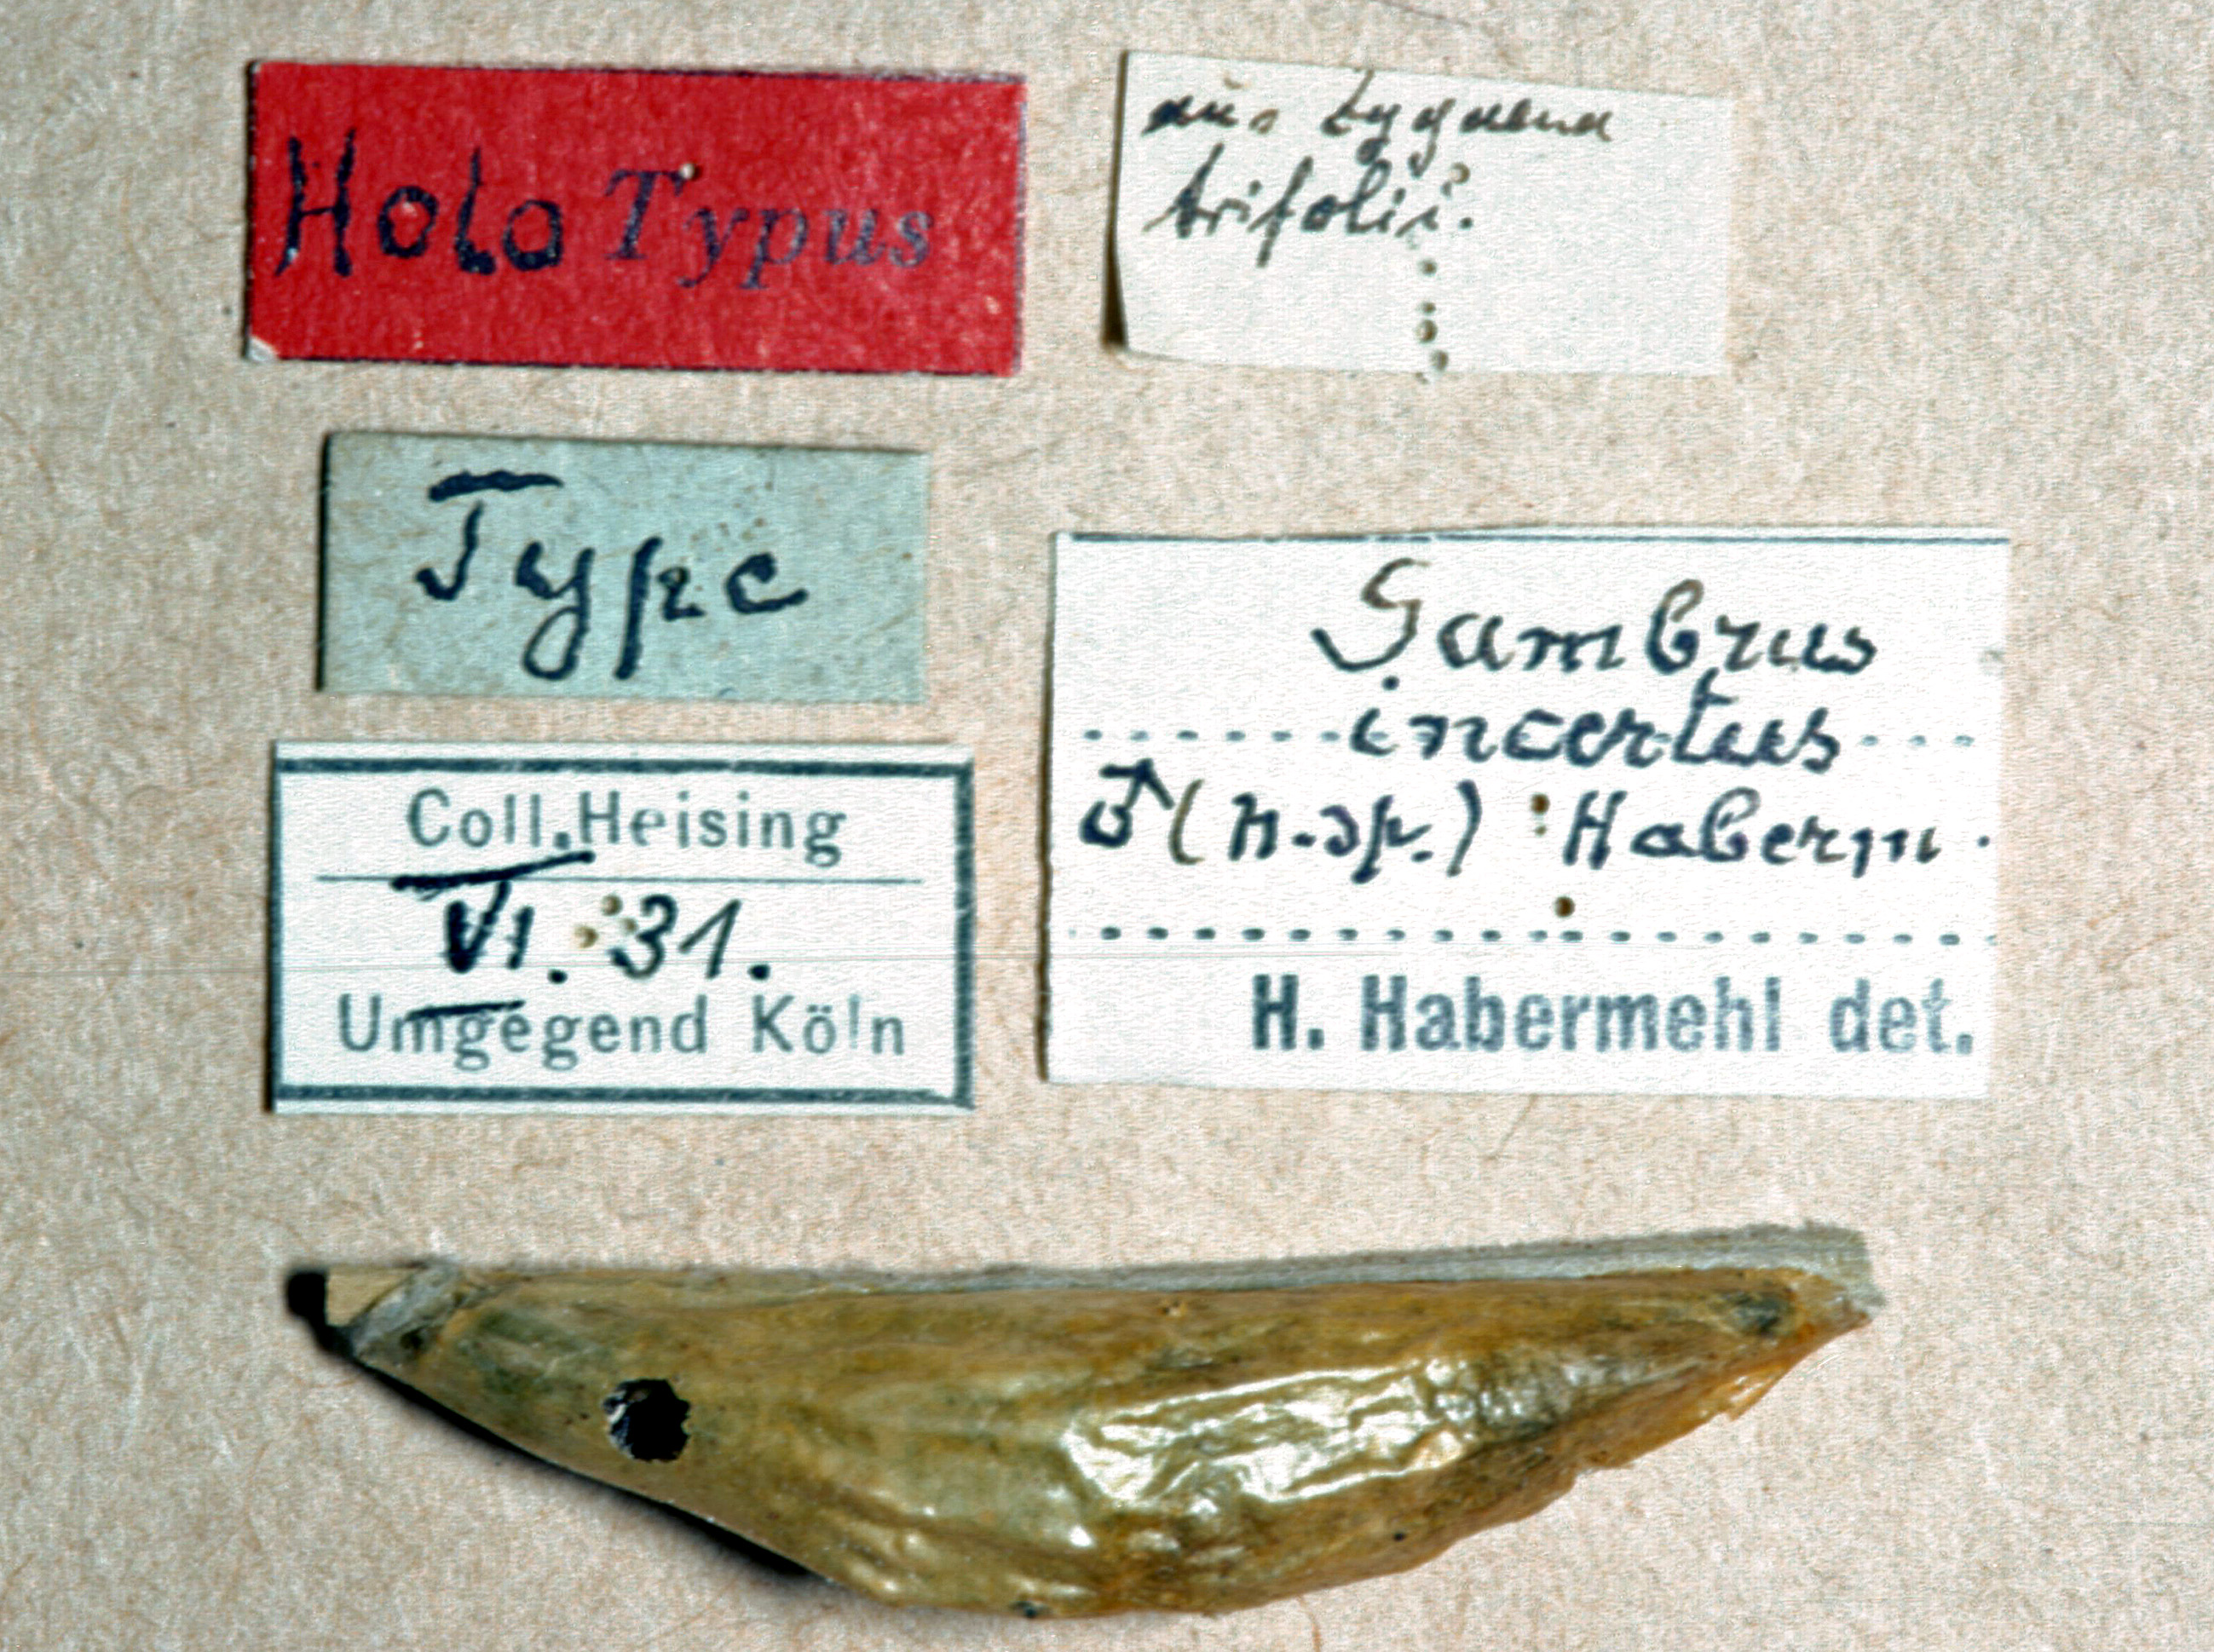 Holo Typus
aus Zygaena
trifolii.
Type
Coll. Heising
VI. 31.
Umgegend Köln
Gambrus
incertus
♂ (n. sp.) Haberm.
H. Habermehl det.